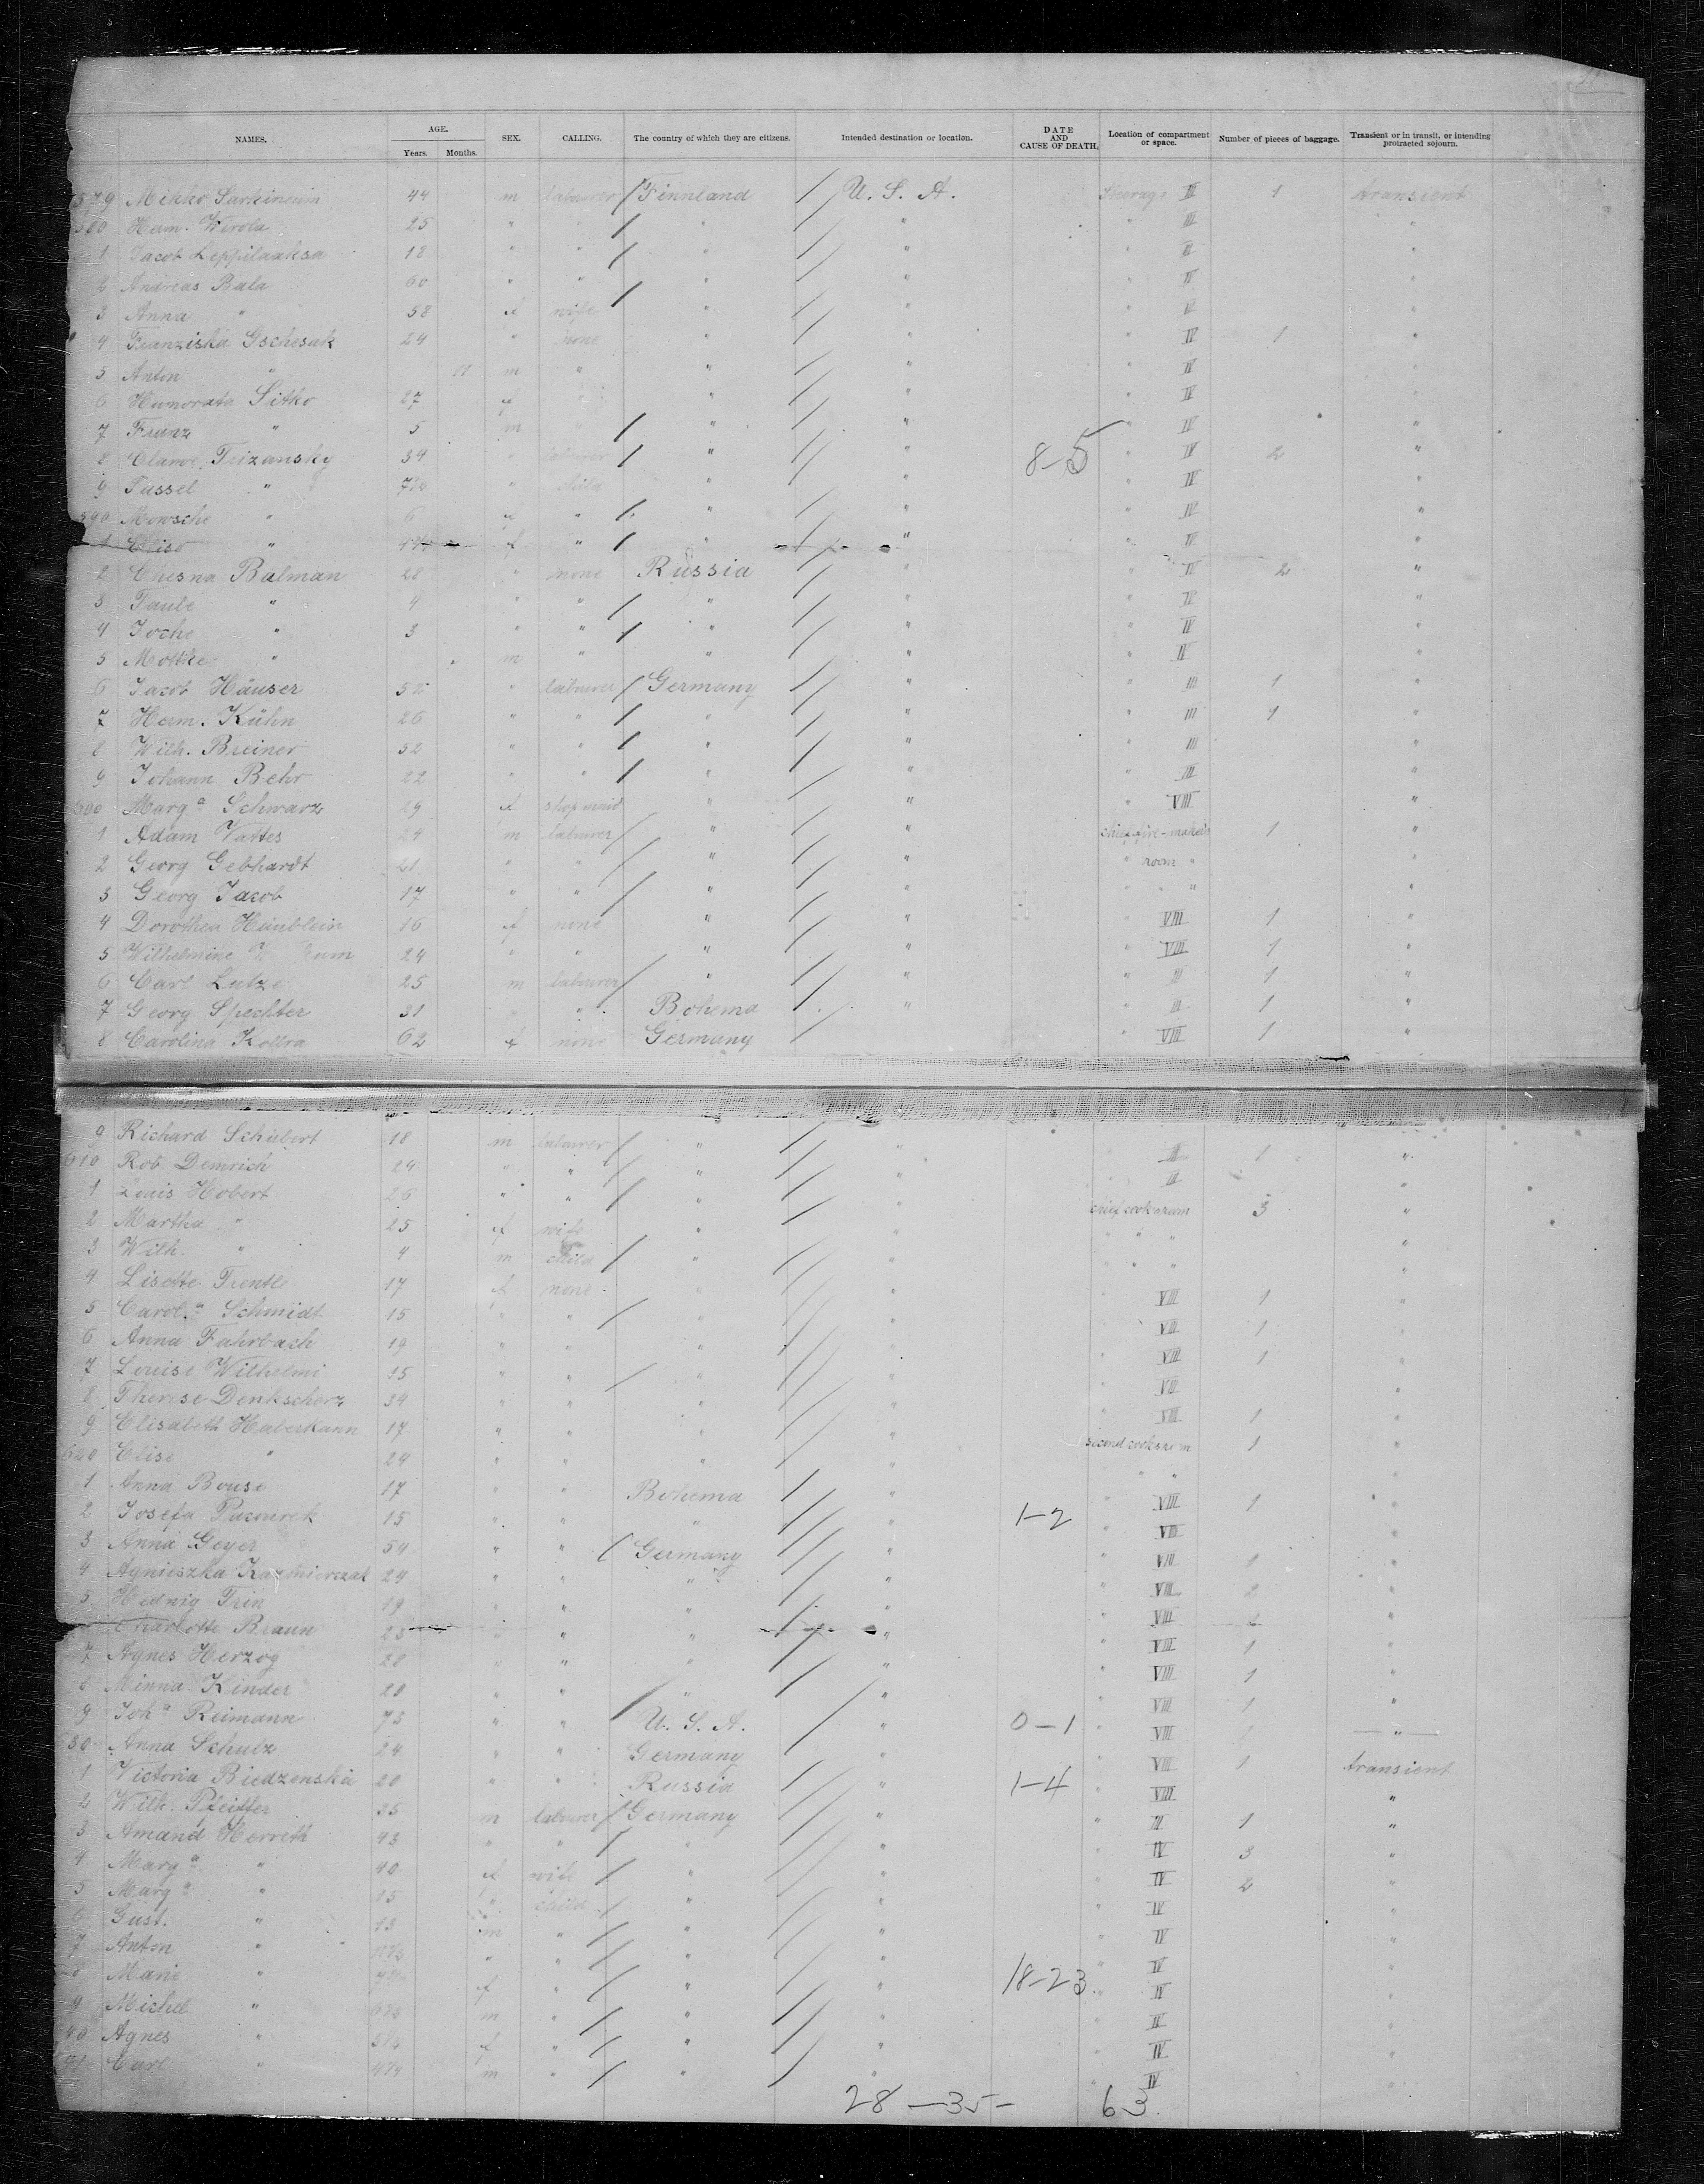 NAMES. AGE. Years. Months. SEX. CALLING. The country of which they are citizens. Intended destination or location. DATE AND CAUSE OF DEATH. Location of compartment or space. Number of pieces of baggage. Transient or in transit, or intending protracted sojourn.
579 Mikko 44 m labourer Finnland U. S. A. Steerage III 1 transient
580 Herm. Wirola 25 " " " " " III "
1 Jacob Leppilaaksa 18 " " " " " II "
2 Andreas Bala 60 " " " " " II "
3 Anna " 58 f wife " " " II "
4 Franziska Gschesak 24 " none " " " IV 1 "
5 Anton " 11 m " " " " IV "
6 Sitko 27 f " " " IV "
7 Franz " 5 m " " " IV "
8 Trizansky 34 " labourer " " 8-5 " IV 2 "
9 " " child " " " IV "
590 Mowsche " 6 " " " " IV "
1 Elise " f " " " " IV "
2 Chesna Balman 28 " none Russia " " IV 2 "
3 Taube " 4 " " " " " IV "
4 Joche " 3 " " " " " IV "
5 Mottke " m " " " " IV "
6 Jacob Häuser 52 " labourer Germany " " III 1 "
7 Herm. Kühn 26 " " " " " III 1 "
8 Wilh. Breiner 52 " " " " " III "
9 Johann Behr 22 " " " " " III "
600 Marga Schwarz 29 f shop maid " " " VIII "
1 Adam Vattes 24 m labourer " " chief fire-maker's 1 "
2 Georg Gebhardt 21 " " " " " room " "
3 Georg Jacob 17 " " " " " " " "
4 Dorothea Häublein 16 f none " " " VIII 1 "
5 Wilhelmine 24 " " " " " VIII 1 "
6 Carl Lutze 25 m labourer " " " III 1 "
7 Georg Spechter 31 " " Bohema " " III 1 "
8 Carolina Kollra 62 f none Germany " VIII 1 "
9 Richard Schubert 18 m labourer " " III 1 "
610 Rob. Demrich 24 " " " " III "
1 Louis Hobert 26 " " " " chief cooks room 3 "
2 Martha " 25 f wife " " " " " "
3 Wilh. " 4 m child " " " " " "
4 Lisette Trentle 17 f none " " " VIII 1 "
5 Carola Schmidt 15 " " " " " VIII 1 "
6 Anna Fahrbach 19 " " " " " VIII 1 "
7 Louise Wilhelmi 15 " " " " " VIII "
8 Therese Denkscherz 34 " " " " " VIII 1 "
9 Elisabeth Haberkann 17 " " " " second cooks room 1 "
620 Elise " 24 " " " " " " "
1 Anna Bouse 17 " " Bohema " " VIII 1 "
2 Josefa Pacourek 15 " " " " 1-2 " VIII "
3 Anna Geyer 54 " " Germany " " VIII 1 "
4 Agnieszka Kazmierczak 24 " " " " " VIII 2 "
5 Hedwig Trin 19 " " " " " VIII "
Charlotte Braun 23 " " " " " VIII 1 "
7 Agnes Herzog 28 " " " " " VIII 1 "
8 Minna Kinder 20 " " " " " VIII 1 "
9 Joha Reimann 73 " " U. S. A. " 0-1 " VIII 1 "
630 Anna Schulz 24 " " Germany " " VIII 1 transient
1 Victoria Biedzenska 20 " " Russia " 1-4 " VIII "
2 Wilh. Pfeiffer 35 m labourer Germany " " III 1 "
3 Amand Herreth 43 " " " " " IV 3 "
4 Marga " 40 f wife " " " IV 2 "
5 Marga " 15 " child " " " IV "
6 Gust. " 13 m " " " " IV "
7 Anton " " " " " " IV "
8 Marie " f " " " 18-23 " IV "
9 Michel " m " " " " IV "
40 Agnes " f " " " " IV "
41 Carl " m " " " " IV "
28 - 35 - 63.